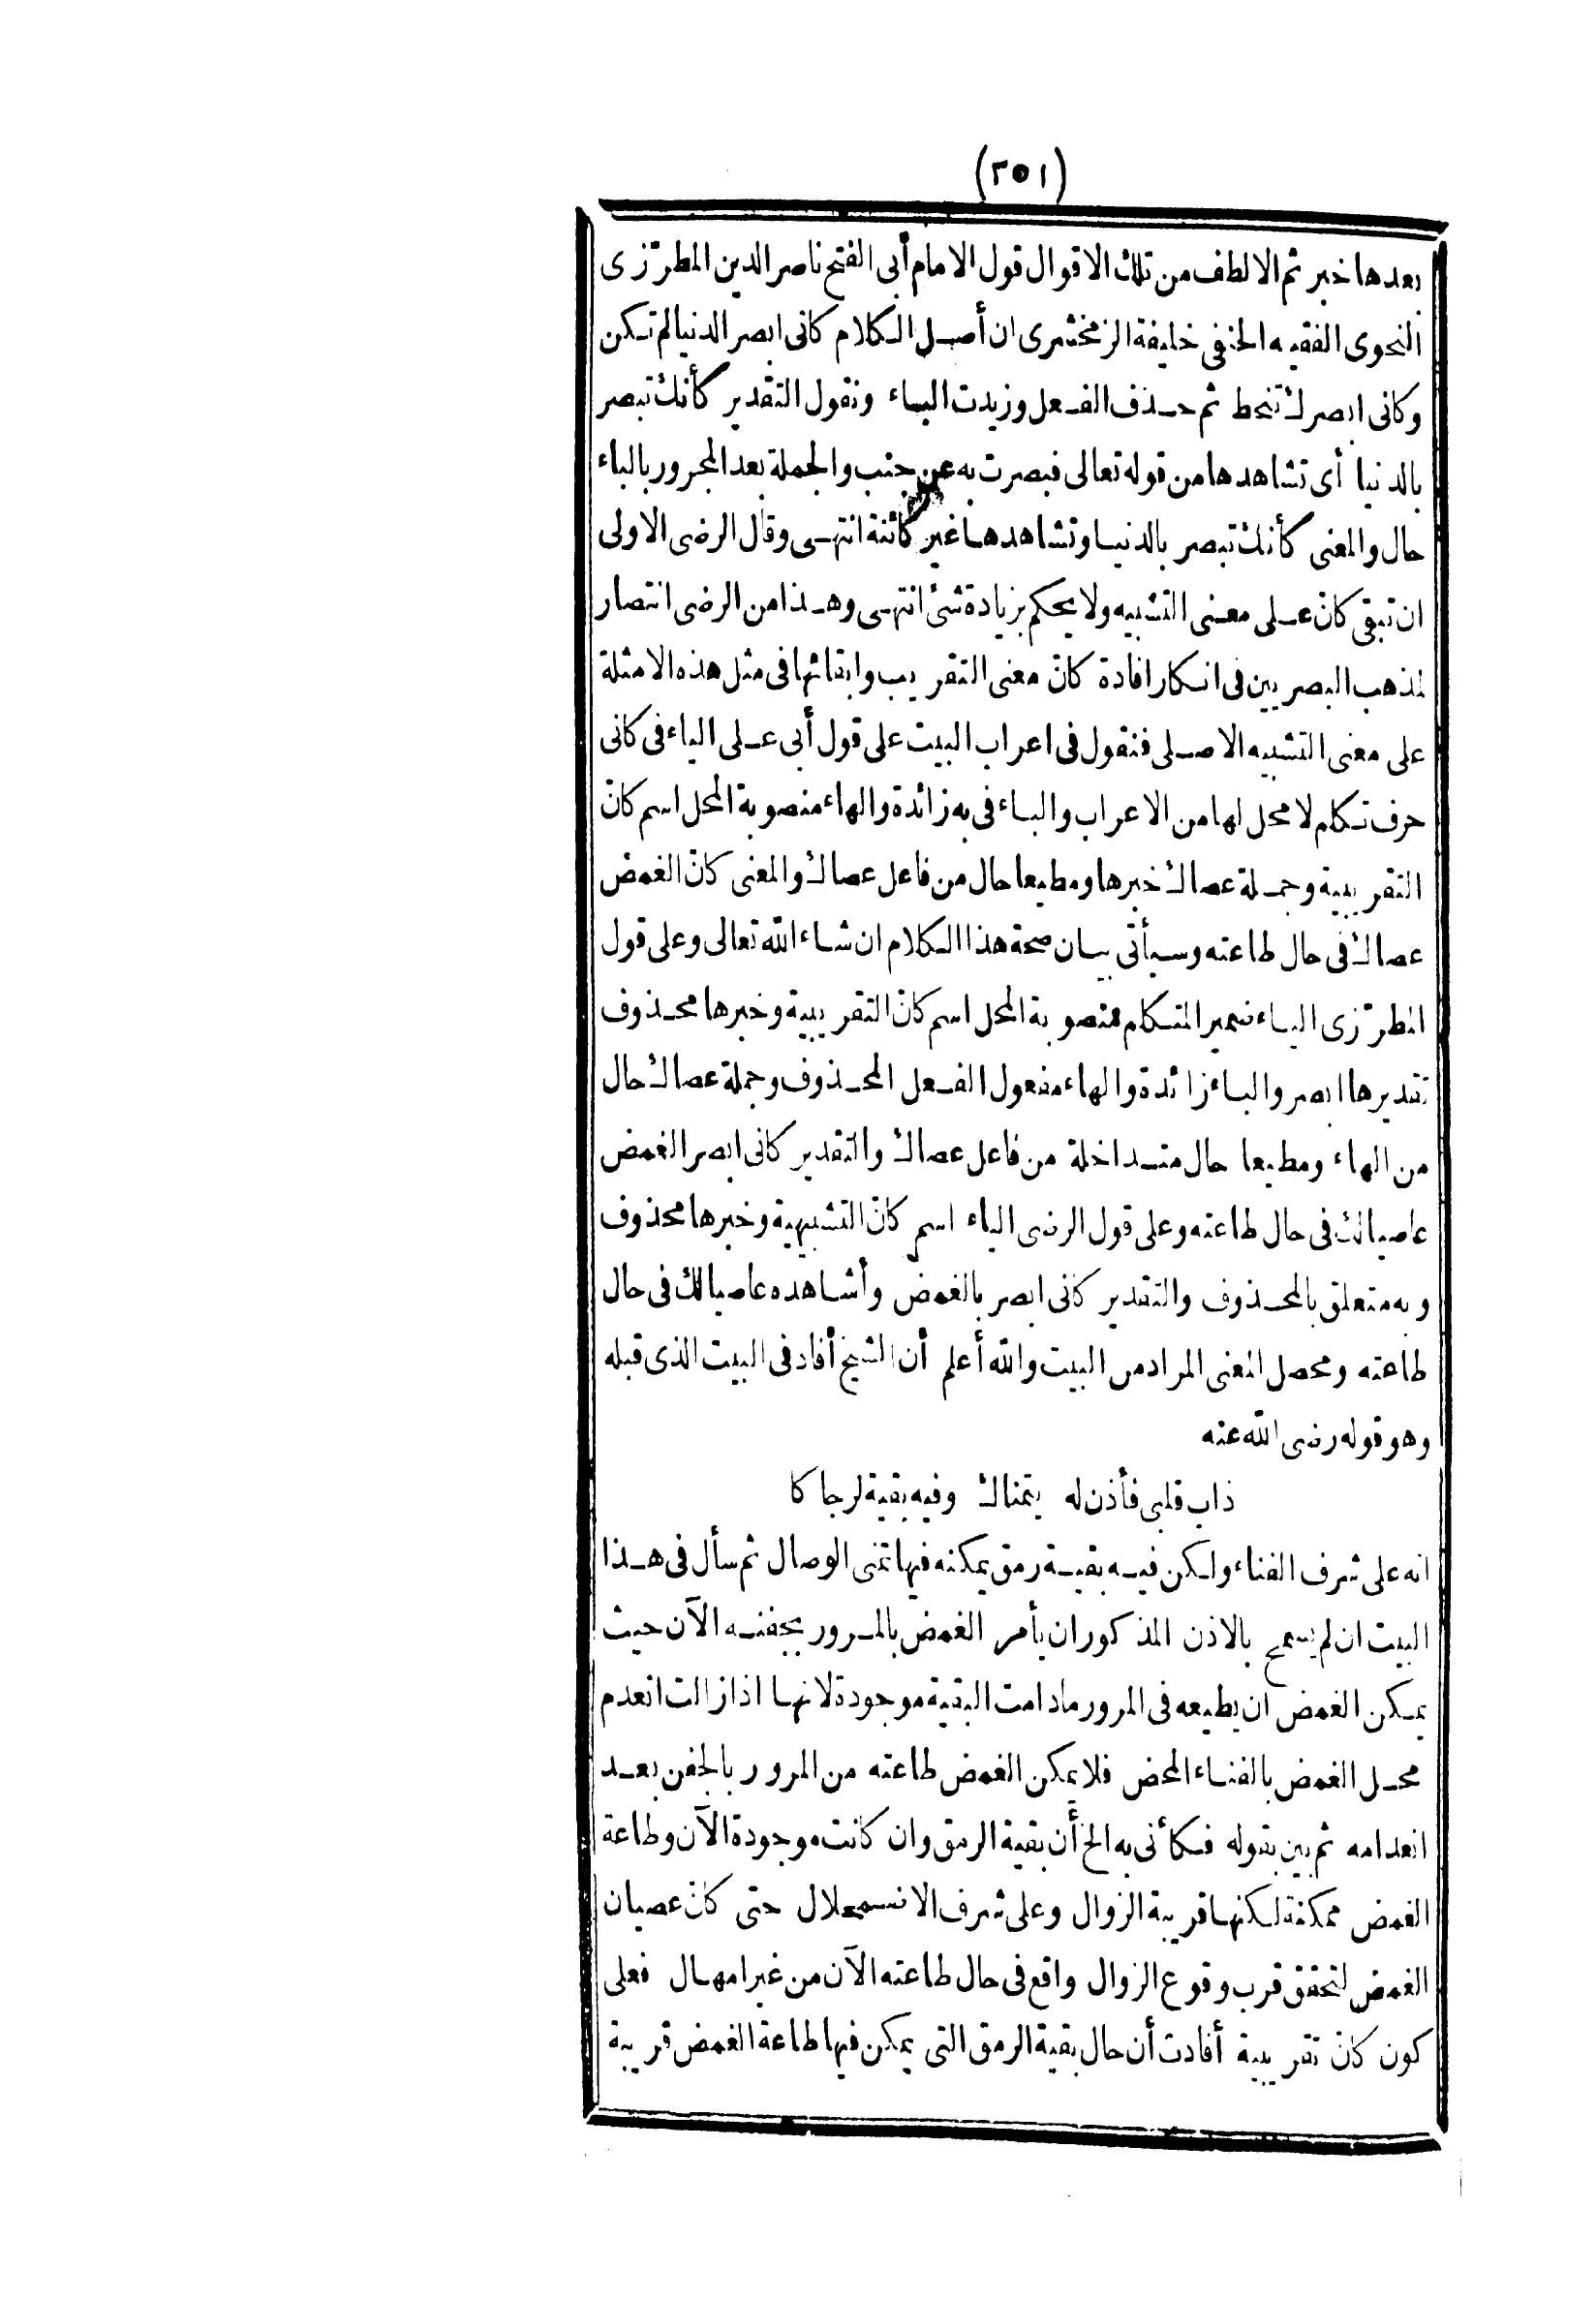 (٣٥١)
بعدها خبر ثم الالطف من تلك الاقوال قول الامام أبى الفتح ناصر الدين المطرّزى
النحوى الفقيه الحنفى خليفة الزمخشرى ان أصل الكلام كانى ابصر الدنيا لم تكن
وكانى ابصرك تنحط ثم حذف الفعل وزيدت الباء ونقول التقدير كأنك تبصر
بالدنيا أى تشاهدها من قوله تعالى فبصرت به عن جنب والجملة بعد المجرور بالباء
حال والمعنى كأنك تبصر بالدنيا وتشاهدها غير كائنة انتهى وقال الرضى الاولى
ان تبقى كانّ على معنى التشبيه ولا يحكم بزيادة شئ انتهى وهذا من الرضى انتصار
لمذهب البصريين فى انكار افادة كانّ معنى التقريب وابقائها فى مثل هذه الامثلة
على معنى التشبيه الاصلى فنقول فى اعراب البيت على قول أبى على الياء فى كانى
حرف تكلم لا محل لها من الاعراب والباء فى به زائدة والهاء منصوبة المحل اسم كانّ
التقريبية وجملة عصاك خبرها ومطيعا حال من فاعل عصاك والمعنى كانّ الغمض
عصاك فى حال طاعته وسيأتى بيان صحة هذا الكلام ان شاء الله تعالى وعلى قول
المطرّزى الياء ضمير المتكلم منصوبة المحل اسم كانّ التقريبية وخبرها محذوف
تقديرها ابصر والباء زائدة والهاء مفعول الفعل المحذوف وجملة عصاك حال
من الهاء ومطيعا حال متداخلة من فاعل عصاك والتقدير كانى ابصر الغمض
عاصيالك فى حال طاعته وعلى قول الرضى الياء اسم كانّ التشبيهية وخبرها محذوف
وبه متعلق بالمحذوف والتقدير كانى ابصر بالغمض وأشاهده عاصيالك فى حال
طاعته ومحصل المعنى المراد من البيت والله أعلم أن الشيخ أفاد فى البيت الذى قبله
وهو قوله رضى الله عنه
ذاب قلبى فأذن له يتمناك وفيه بقية لرجاكا
انه على شرف الفناء ولكن فيه بقية رمق يمكنه فيها تمنى الوصال ثم سأل فى هذا
البيت ان لم يسمح بالاذن المذكور ان يأمر الغمض بالمرور بجفنه الآن حيث
يمكن الغمض ان يطيعه فى المرور مادامت البقية موجودة لانها اذا زالت انعدم
محل الغمض بالفناء المحض فلا يمكن الغمض طاعته من المرور بالجفن بعد
انعدامه ثم بين بقوله فكأنى به الخ أن بقية الرمق وان كانت موجودة الآن وطاعة
الغمض ممكنة لكنها قريبة الزوال وعلى شرف الاضمحلال حتى كانّ عصيان
الغمض لتحقق قرب وقوع الزوال واقع فى حال طاعته الآن من غير امهال فعلى
كون كانّ تقريبية أفادت أن حال بقية الرمق التى يمكن فيها طاعة الغمض قريبة